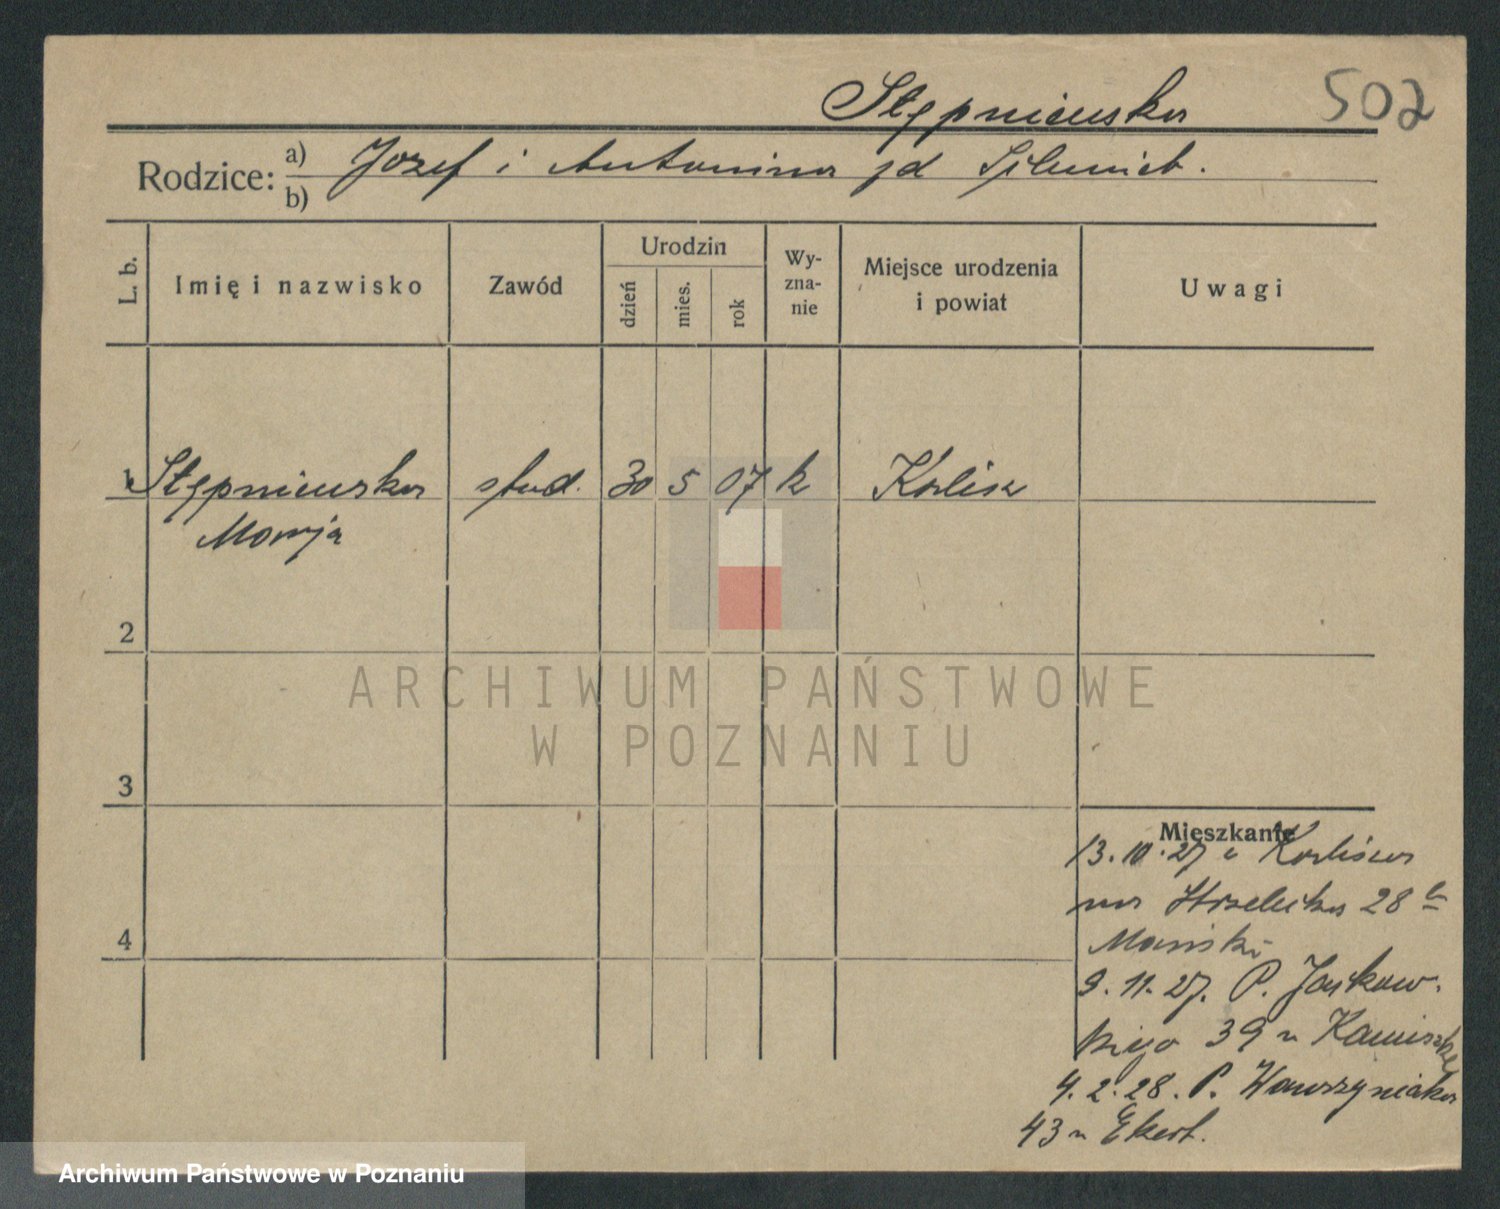 Stępniewska 502
Rodzice: a) Józef i Antonina
b)
L. b. Imię i nazwisko Zawód Urodzin dzień mies. rok Wyznanie Miejsce urodzenia i powiat Uwagi
1 Stępniewska stud. 30 5 07 k Kalisz
Marja
2
3
4
Mieszkanie
13.10.27 z Kalisza
na Strzelecka 28
Mański
9.11.27. P. Jackow-
kiego 39 u
4.2.28. P. Wawrzyniaka
43 u Ekert.
ARCHIWUM PAŃSTWOWE
W POZNANIU
Archiwum Państwowe w Poznaniu